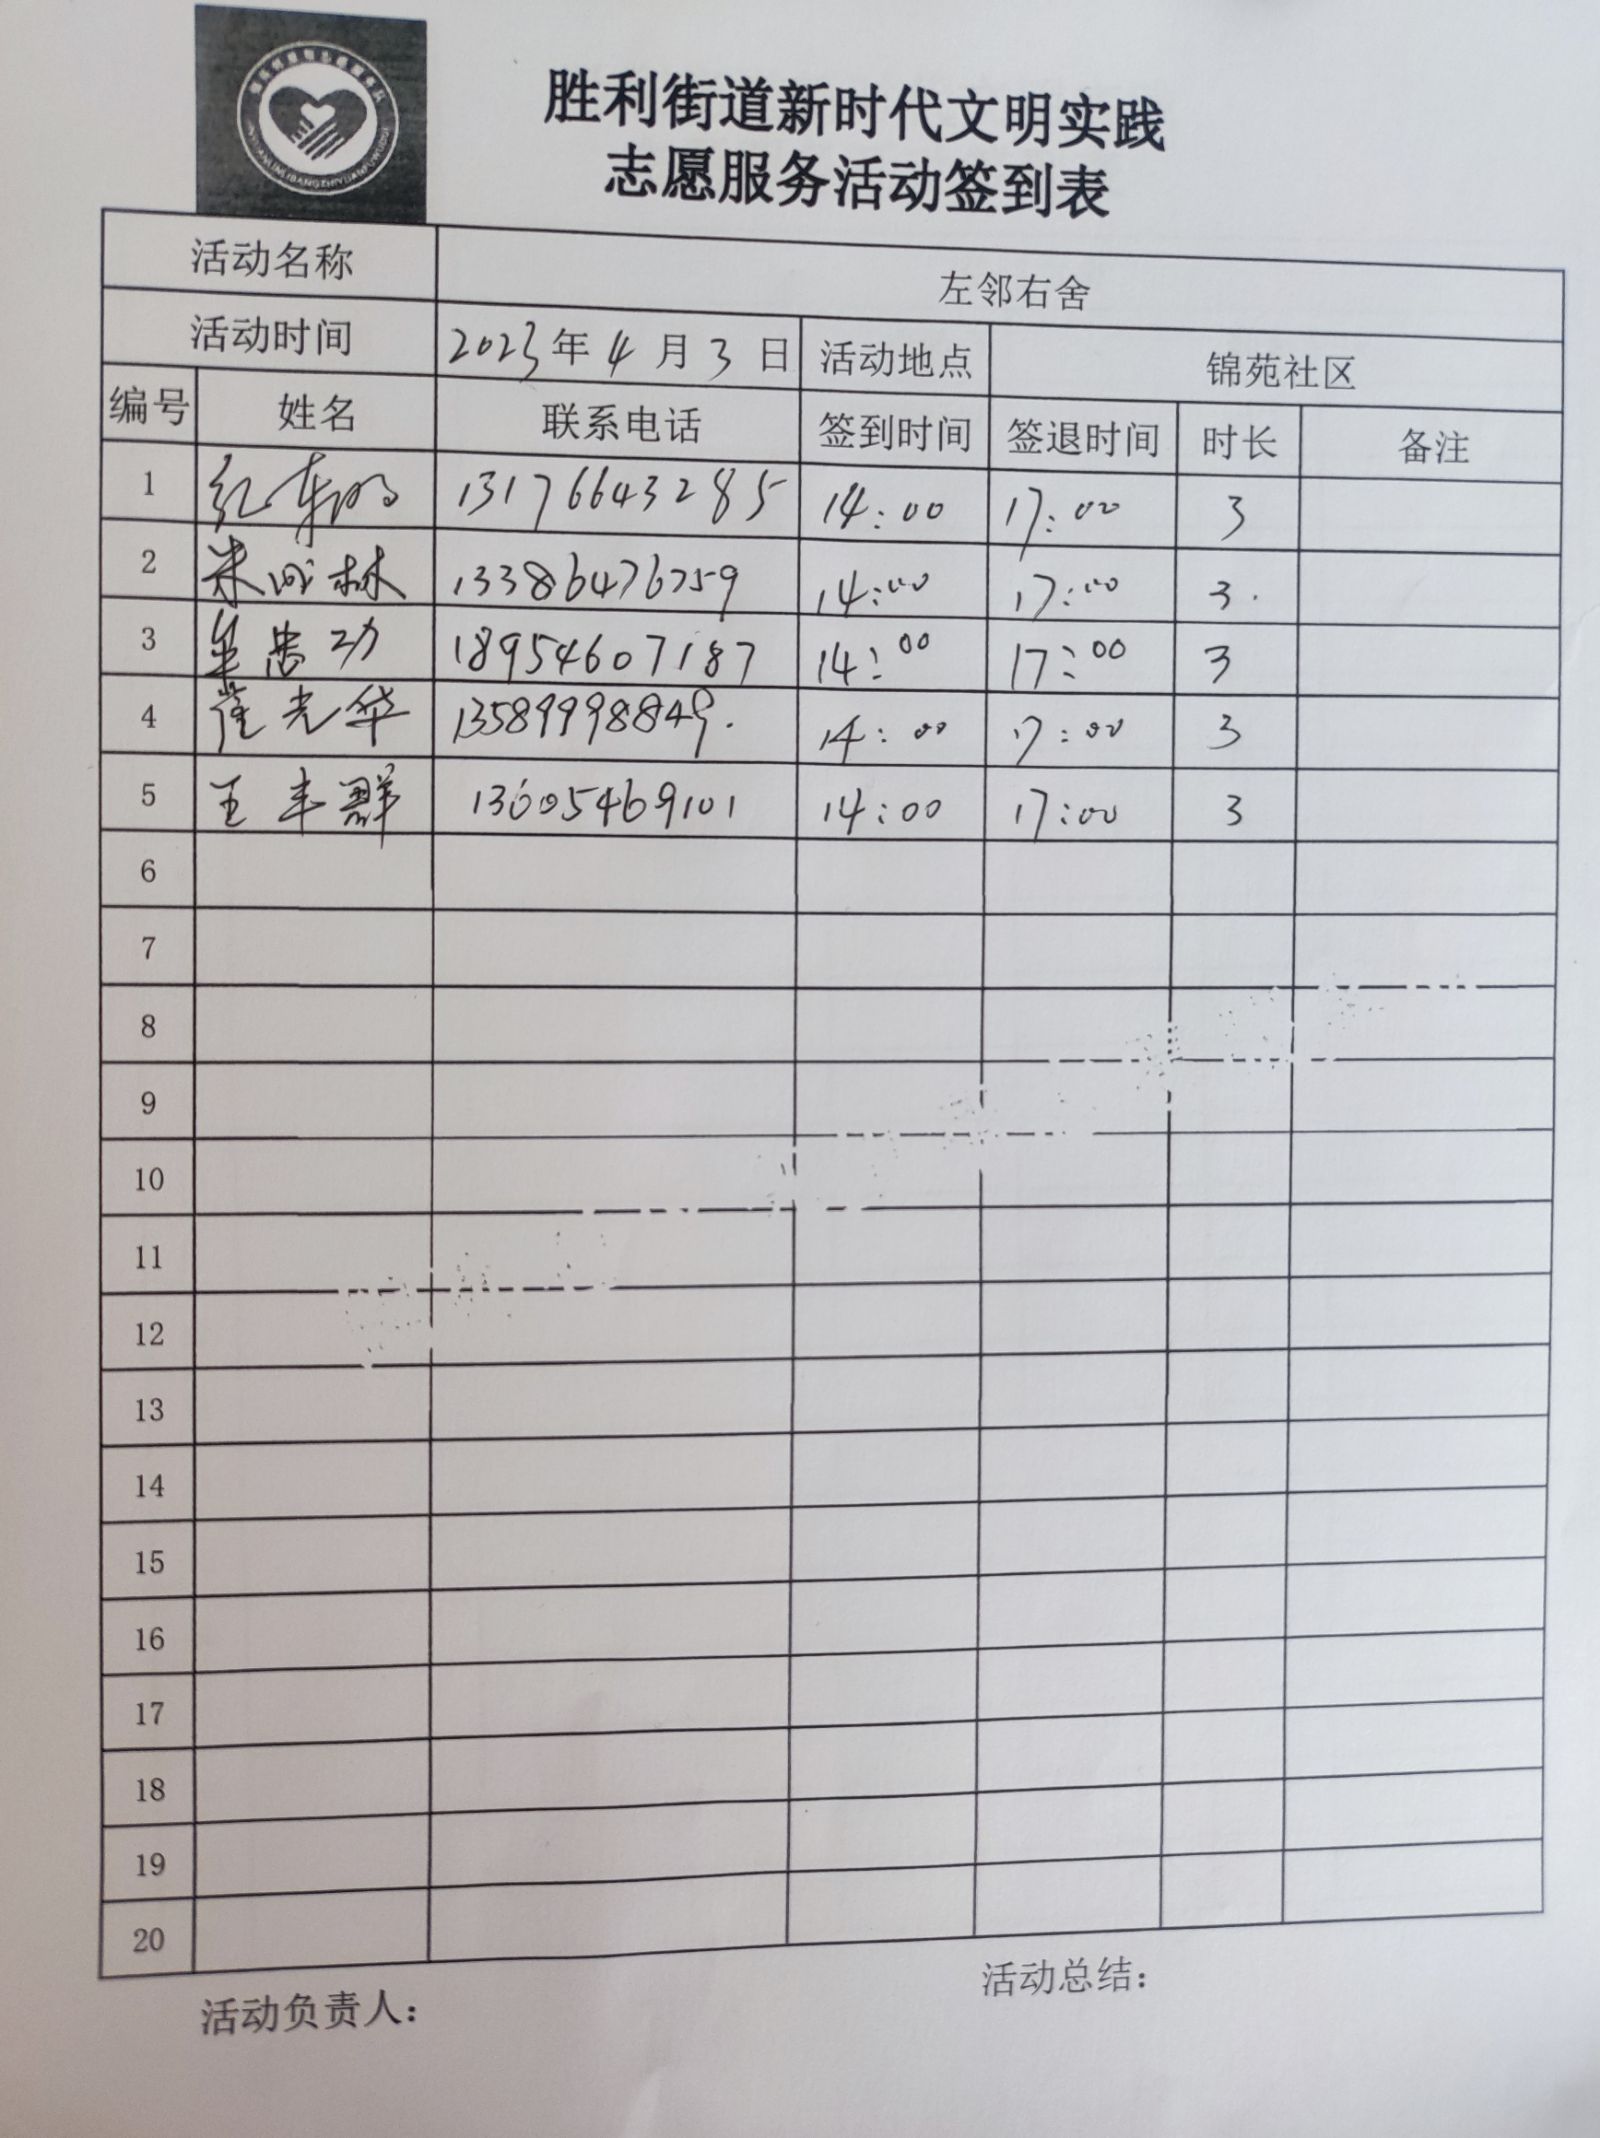 胜利街道新时代文明实践
志愿服务活动签到表
活动名称 左邻右舍
活动时间 2023年4月3日 活动地点 锦苑社区
编号 姓名 联系电话 签到时间 签退时间 时长 备注
1 13176643285 14:00 17:00 3
2 林 13386476759 14:00 17:00 3.
3 功 18954607187 14:00 17:00 3
4 崔光华 13589998849. 14:00 17:00 3
5 王丰群 13605469101 14:00 17:00 3
6
7
8
9
10
11
12
13
14
15
16
17
18
19
20
活动负责人： 活动总结：